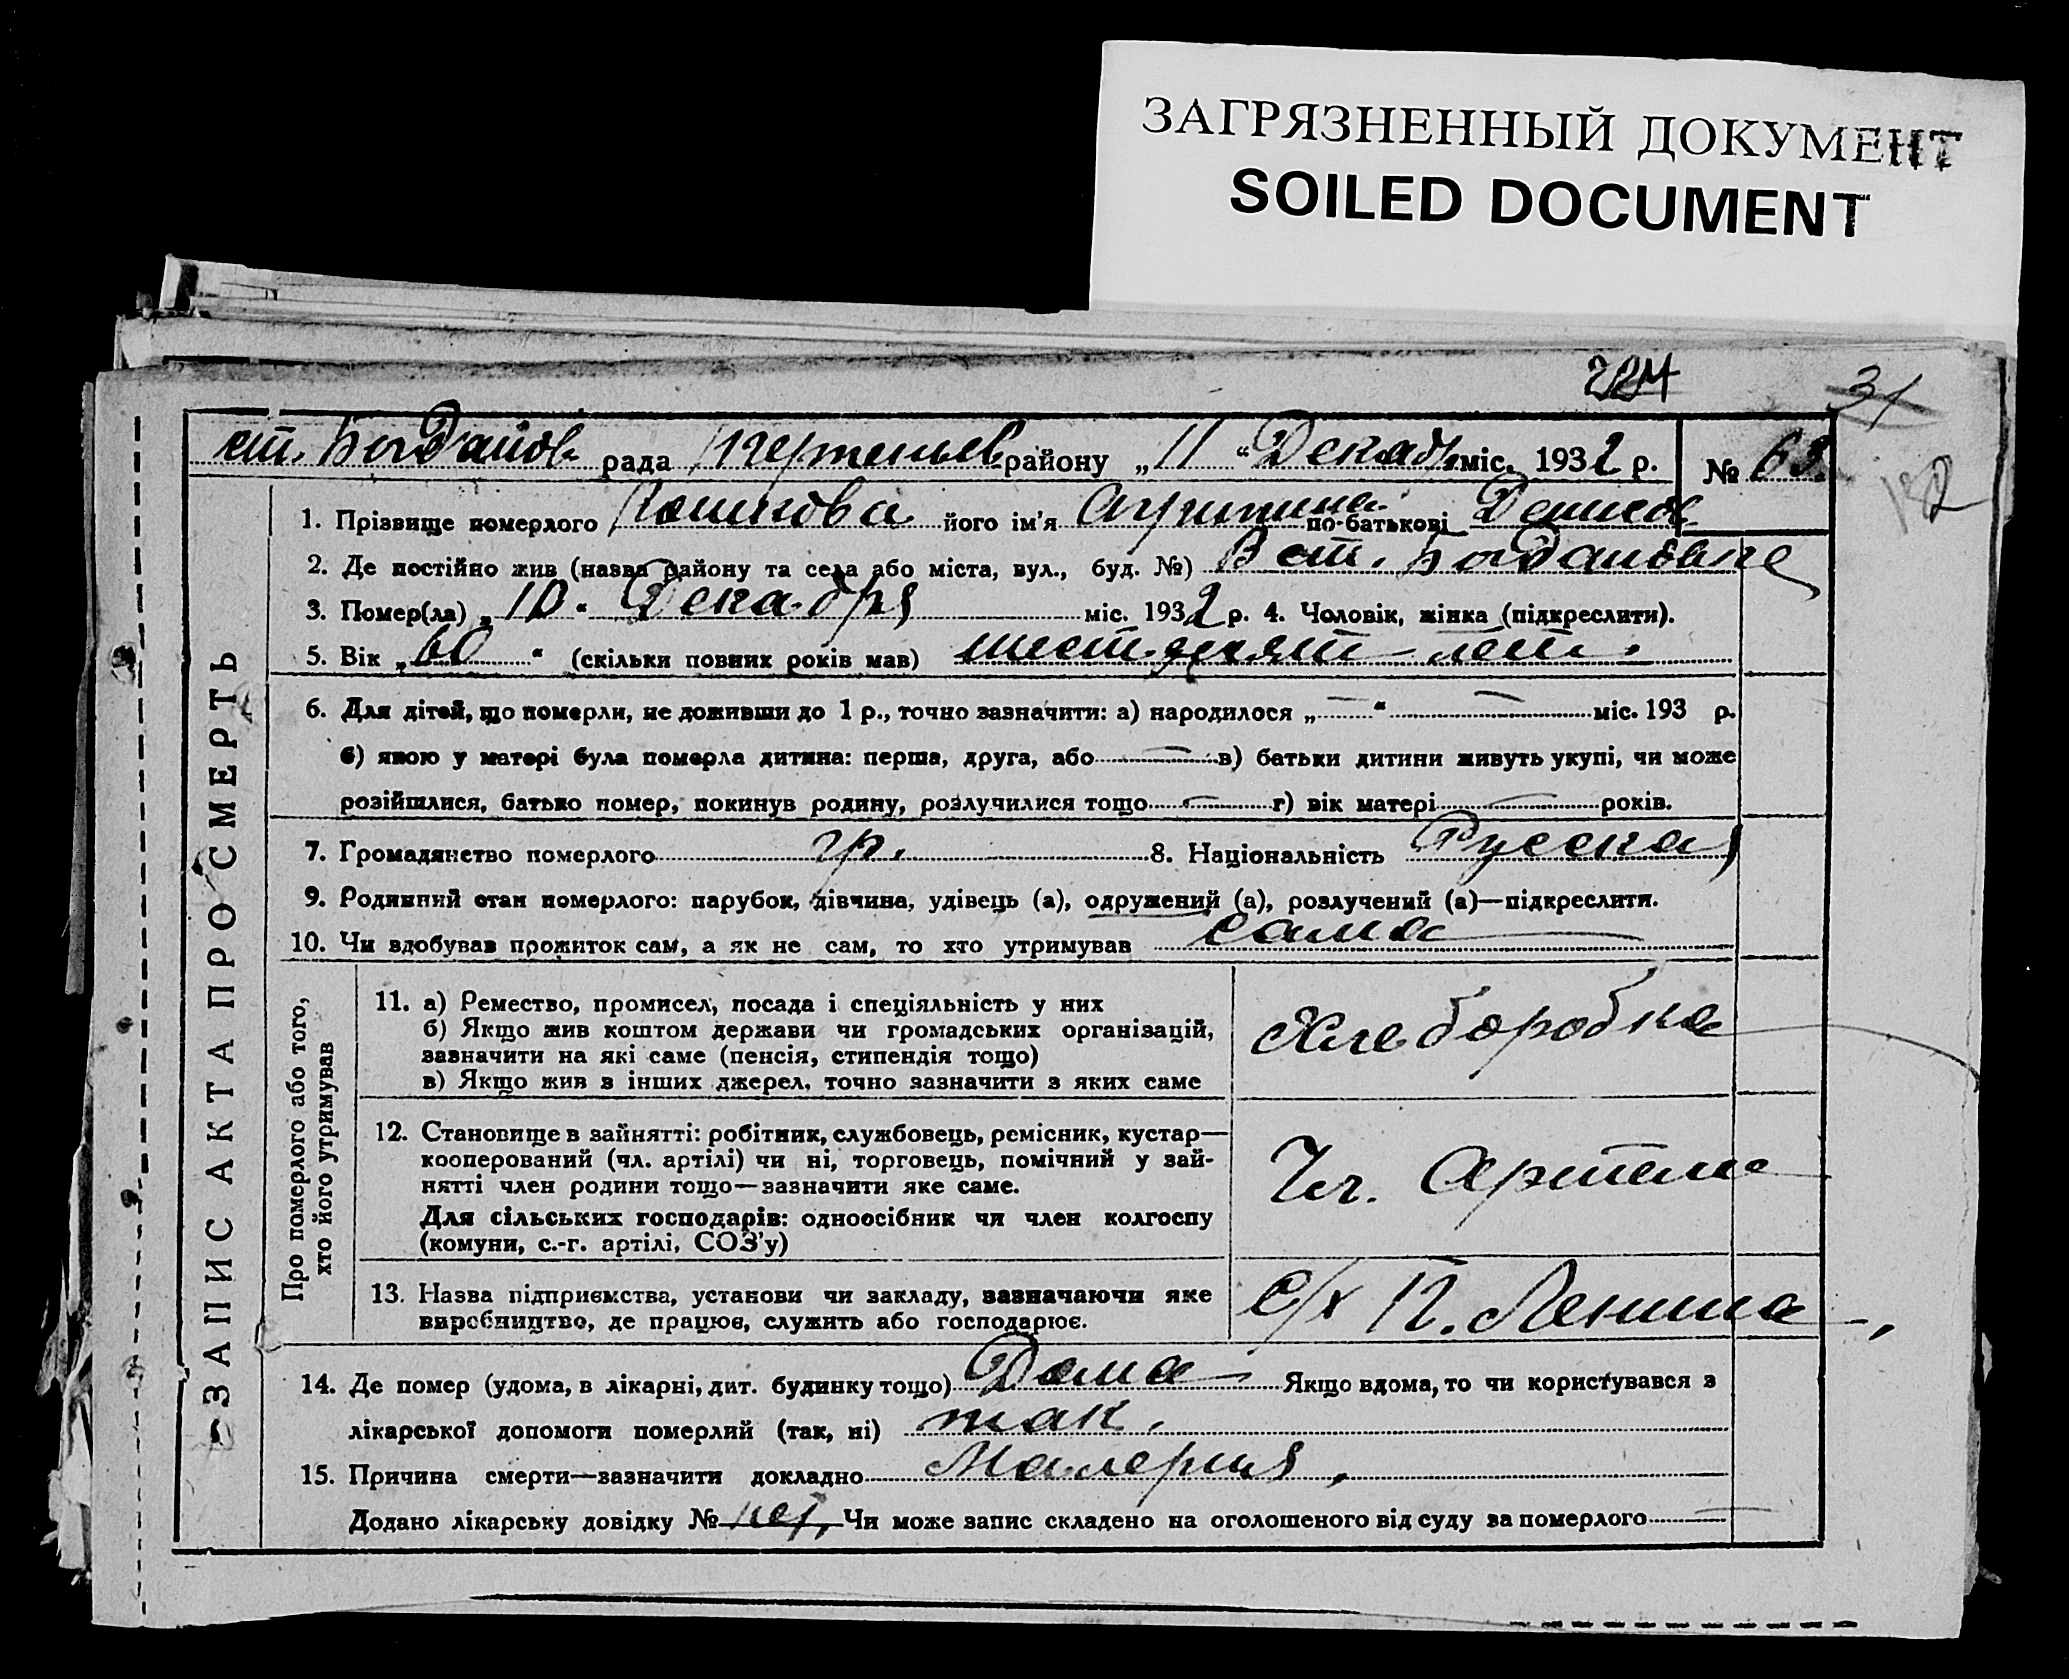 ЗАГРЯЗНЕННЫЙ ДОКУМЕНТ
SOILED DOCUMENT
31
ст. Богданов рада районy „11“ Декабр. міс. 1932 р. № 63
1. Прізвище померлого його ім'я Агрипина по-батькові Денисов
2. Де постійно жив (назва району та села або міста, вул., буд. №) В ст. Богдановке
3. Помер(ла) „10“ Декабря міс. 1932 р. 4. Чоловік, жінка (підкреслити).
5. Вік „60“ (скільки повних років мав) шестдесят лет.
6. Для дітей, що померли, не доживши до 1 р., точно зазначити: а) народилося „ “ міс. 193 р.
б) якою у матері була померла дитина: перша, друга, або в) батьки дитини живуть укупі, чи може
розійшлися, батько помер, покинув родину, розлучилися тощо г) вік матері років.
7. Громадянство померлого гр. 8. Національність Русская
9. Родинний стан померлого: парубок, дівчина, удівець (а), одружений (а), розлучений (а)—підкреслити.
10. Чи здобував прожиток сам, а як не сам, то хто утримував сама
ЗАПИС АКТА ПРО СМЕРТЬ
Про померлого або того,
хто його утримував
11. а) Ремество, промисел, посада і спеціяльність у них
б) Якщо жив коштом держави чи громадських організацій,
зазначити на які саме (пенсія, стипендія тощо)
в) Якщо жив з інших джерел, точно зазначити з яких саме
Хлеборобка
12. Становище в зайнятті: робітник, службовець, ремісник, кустар—
кооперований (чл. артілі) чи ні, торговець, помічний у зай-
нятті член родини тощо—зазначити яке саме.
Для сільських господарів: одноосібник чи член колгоспу
(комуни, с.-г. артілі, СОЗ'у)
Чл. Артели
13. Назва підприємства, установи чи закладу, зазначаючи яке
виробництво, де працює, служить або господарює.
с/х П. Ленина
14. Де помер (удома, в лікарні, дит. будинку тощо) Дома Якщо вдома, то чи користувався з
лікарської допомоги померлий (так, ні) так.
15. Причина смерти—зазначити докладно Малерия,
Додано лікарську довідку № нет, Чи може запис складено на оголошеного від суду за померлого